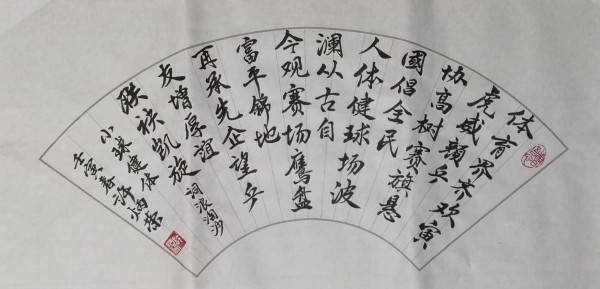 体育界齐欢寅
虎威顯乒
协高树赛旗悬
國倡全民
人体健球场波
澜从古自
今观赛场鹰盘
富平锦地
再承先企望乒
友增厚谊
联袂凯旋 词浪淘沙
小球健体
壬寅春许炳荣